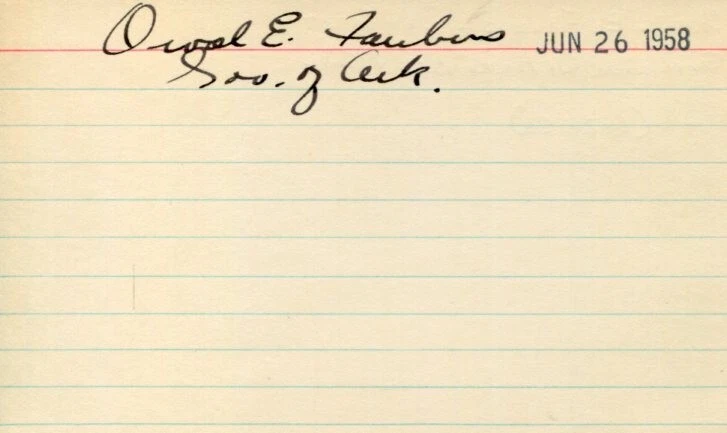 Orval E. Faubus JUN 26 1958
Gov. of Ark.